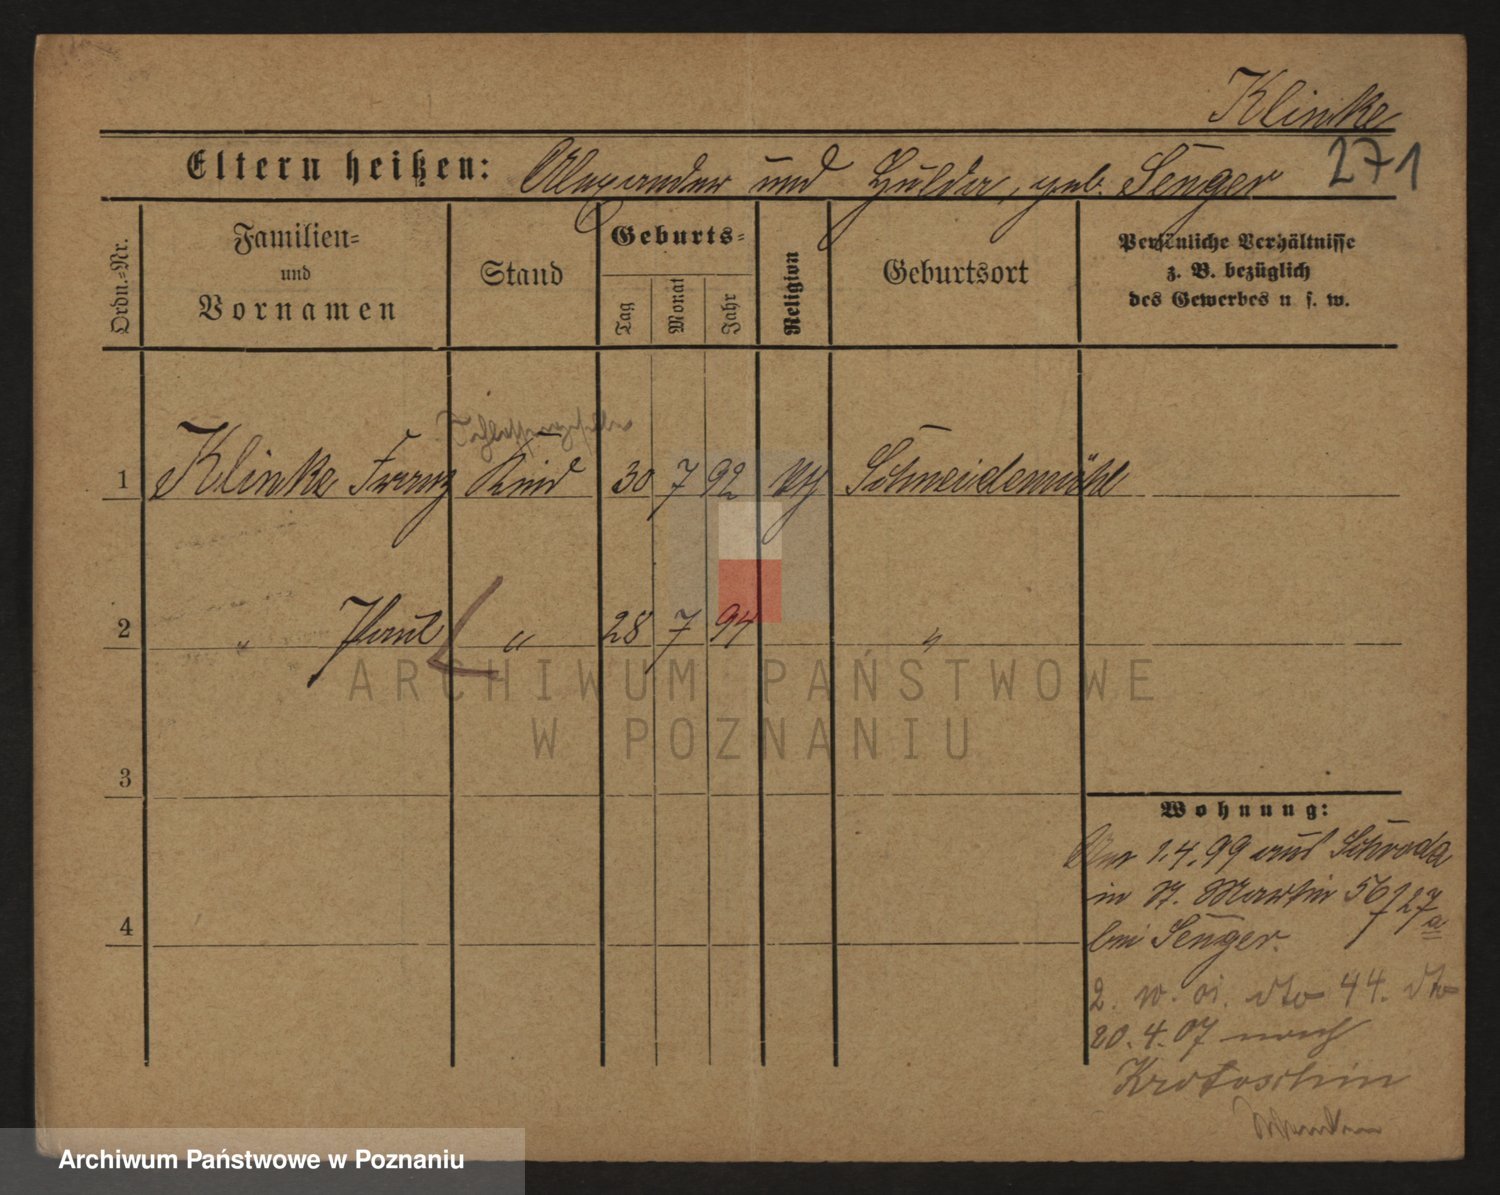 Klinke
271
Eltern heißen: Alexander und Hulda, geb. Senger
Ordn.-Nr.
Familien-
und
Vornamen
Stand
Geburts-
Tag
Monat
Jahr
Religion
Geburtsort
Persönliche Verhältnisse
z. B. bezüglich
des Gewerbes u. s. w.
1 Klinke Franz Kind 30 7 92 Schneidemühl
2 " Paul " 28 7 94 "
3
4
Wohnung:
1.4.99 aus Schroda
in St. Martin 56/27
a
bei Senger.
2. dto 44. dto
20.4.07 nach
Krotoschin
ARCHIWUM PAŃSTWOWE
W POZNANIU
Archiwum Państwowe w Poznaniu